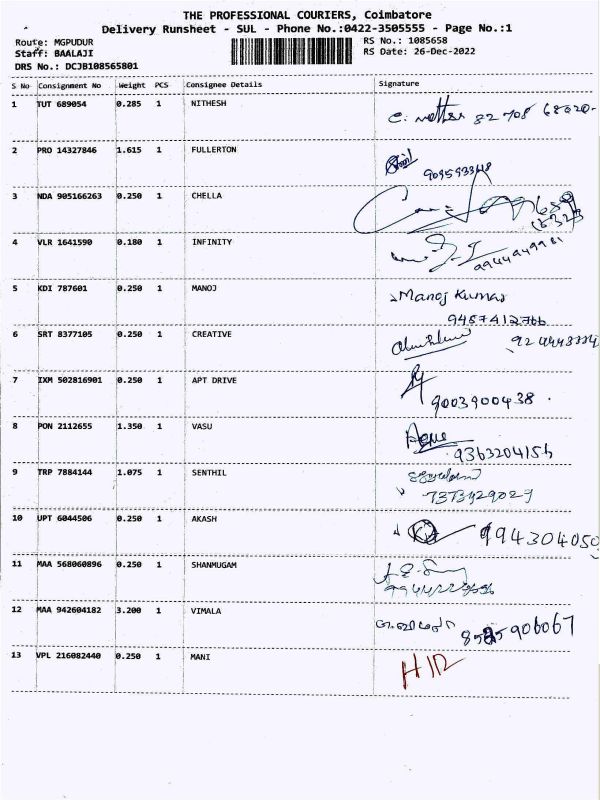 THE PROFESSIONAL COURIERS, Coimbatore
Delivery Runsheet - SUL - Phone No.:0422-3505555 - Page No.:1
Route: MGPUDUR RS No.: 1085658
Staff: BAALAJI RS Date: 26-Dec-2022
DRS No.: DCJB108565801
S No Consignment No Weight PCS Consignee Details Signature
1 TUT 689054 0.285 1 NITHESH
2 PRO 14327846 1.615 1 FULLERTON
3 NDA 905166263 0.250 1 CHELLA
4 VLR 1641590 0.180 1 INFINITY
9944949981
5 KDI 787601 0.250 1 MANOJ Manoj Kumar
9487412766
6 SRT 8377105 0.250 1 CREATIVE
7 IXM 502816901 0.250 1 APT DRIVE
9003900438
8 PON 2112655 1.350 1 VASU
9363204156
9 TRP 7884144 1.075 1 SENTHIL
7373929029
10 UPT 6044506 0.250 1 AKASH
994304050
11 MAA 568060896 0.250 1 SHANMUGAM
12 MAA 942604182 3.200 1 VIMALA
13 VPL 216082440 0.250 1 MANI